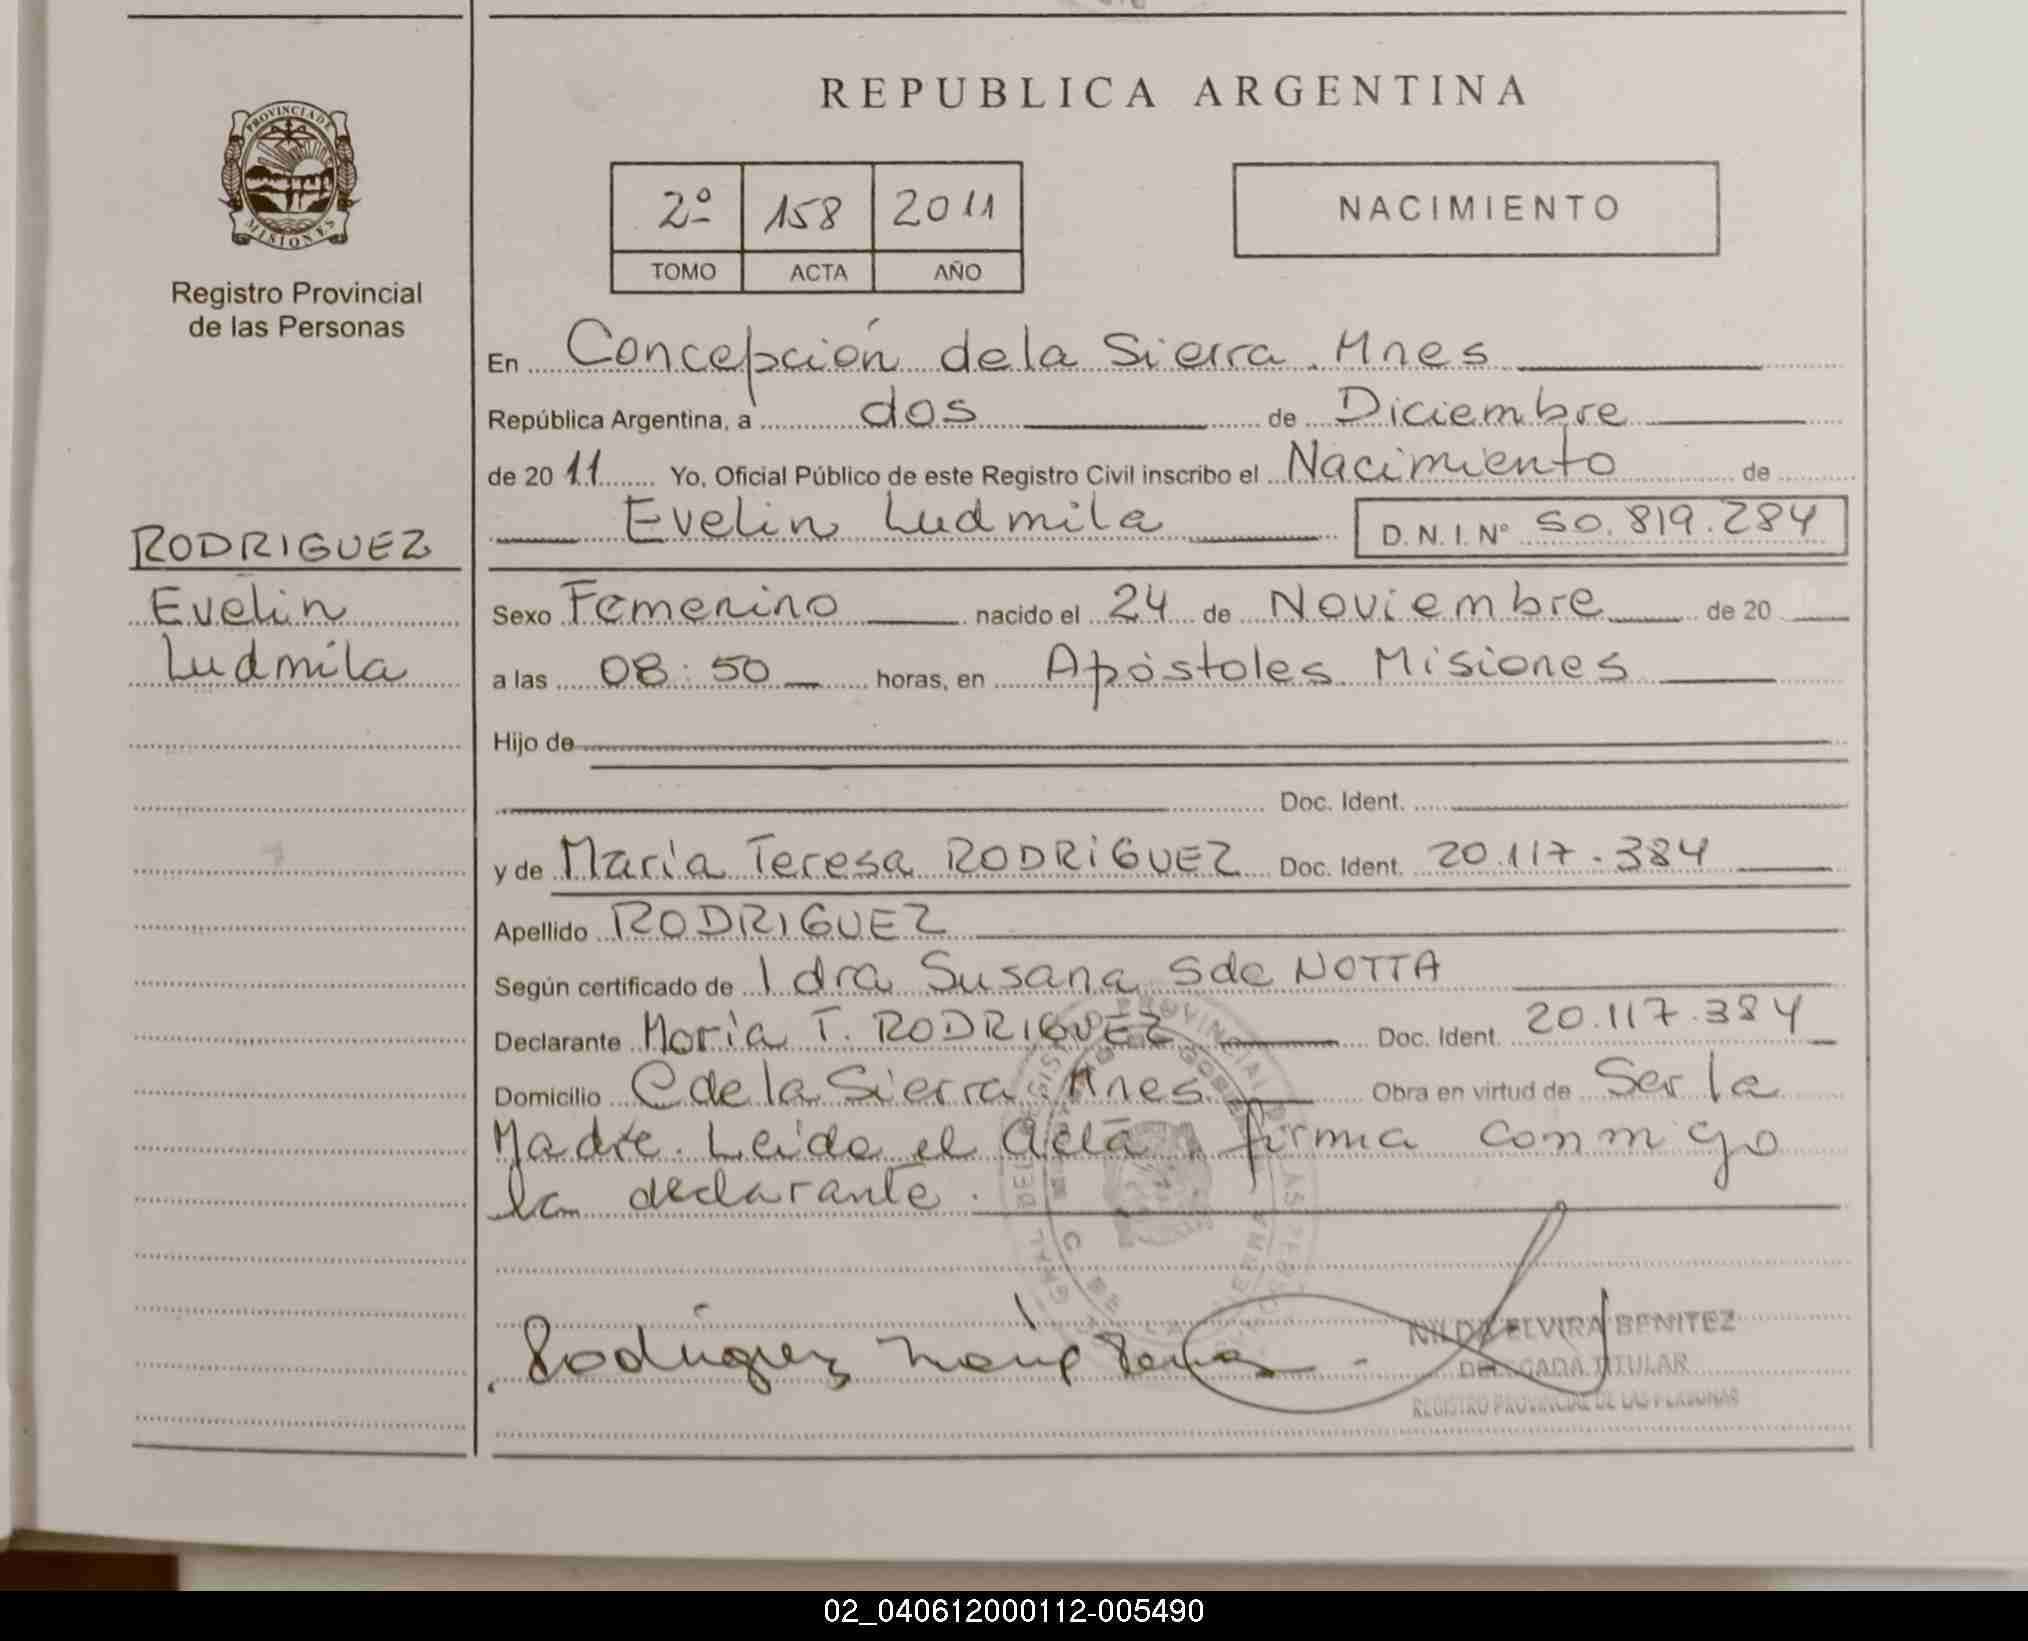 REPUBLICA ARGENTINA
PROVINCIA DE
MISIONES
Registro Provincial
de las Personas
2º 158 2011
TOMO ACTA AÑO
NACIMIENTO
En Concepción de la Sierra. Mnes
República Argentina, a dos de Diciembre
de 2011 Yo, Oficial Público de este Registro Civil inscribo el Nacimiento de
Evelin Ludmila D. N. I. Nº 50.819.284
RODRIGUEZ
Evelin
Ludmila
Sexo Femenino nacido el 24 de Noviembre de 20
a las 08:50 horas, en Apóstoles Misiones
Hijo de
Doc. Ident.
y de María Teresa RODRIGUEZ Doc. Ident. 20.117.384
Apellido RODRIGUEZ
Según certificado de 1 dra Susana S de NOTTA
Declarante María T. RODRIGUEZ Doc. Ident. 20.117.384
Domicilio C de la Sierra Mnes Obra en virtud de Ser la
Madre. Leida el Acta, firma conmigo
la declarante.
Rodriguez
NILDA ELVIRA BENITEZ
DELEGADA TITULAR
REGISTRO PROVINCIAL DE LAS PERSONAS
02_040612000112-005490